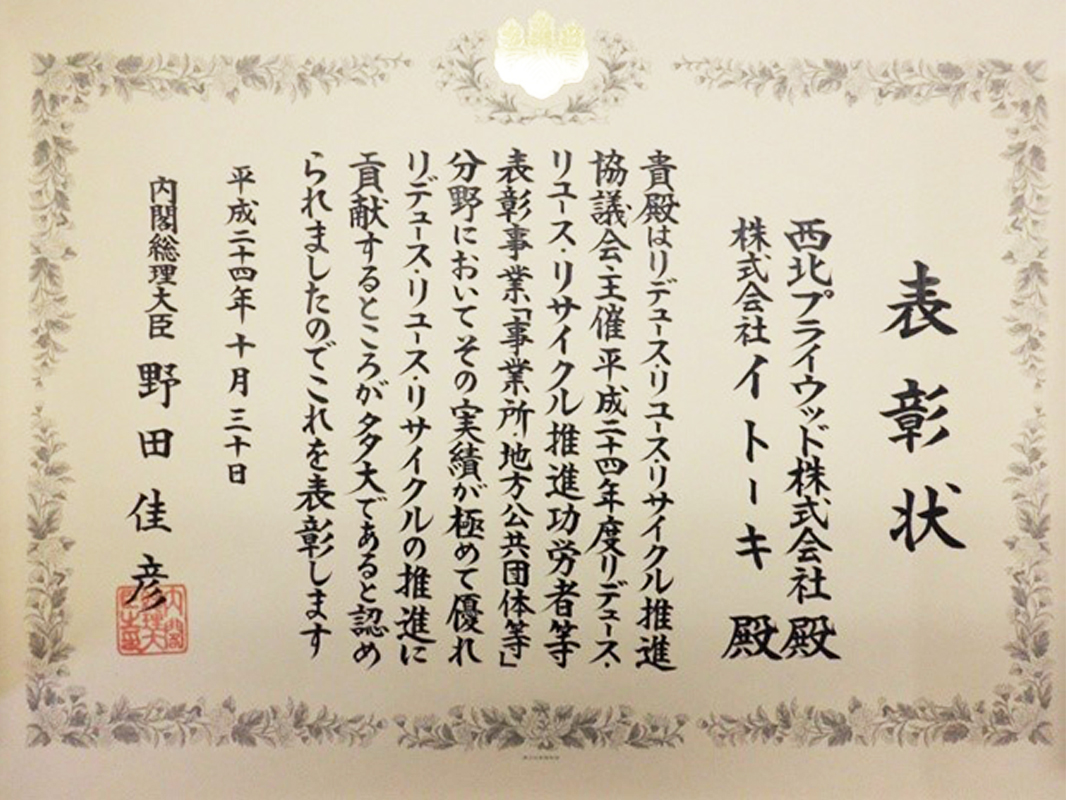 表彰状
西北プライウッド株式会社 殿
株式会社イトーキ 殿
貴殿はリデュース・リユース・リサイクル推進
協議会主催平成二十四年度リデュース・
リユース・リサイクル推進功労者等
表彰事業「事業所・地方公共団体等」
分野においてその実績が極めて優れ
リデュース・リユース・リサイクルの推進に
貢献するところが多大であると認め
られましたのでこれを表彰します
平成二十四年十月三十日
内閣総理大臣 野田佳彦